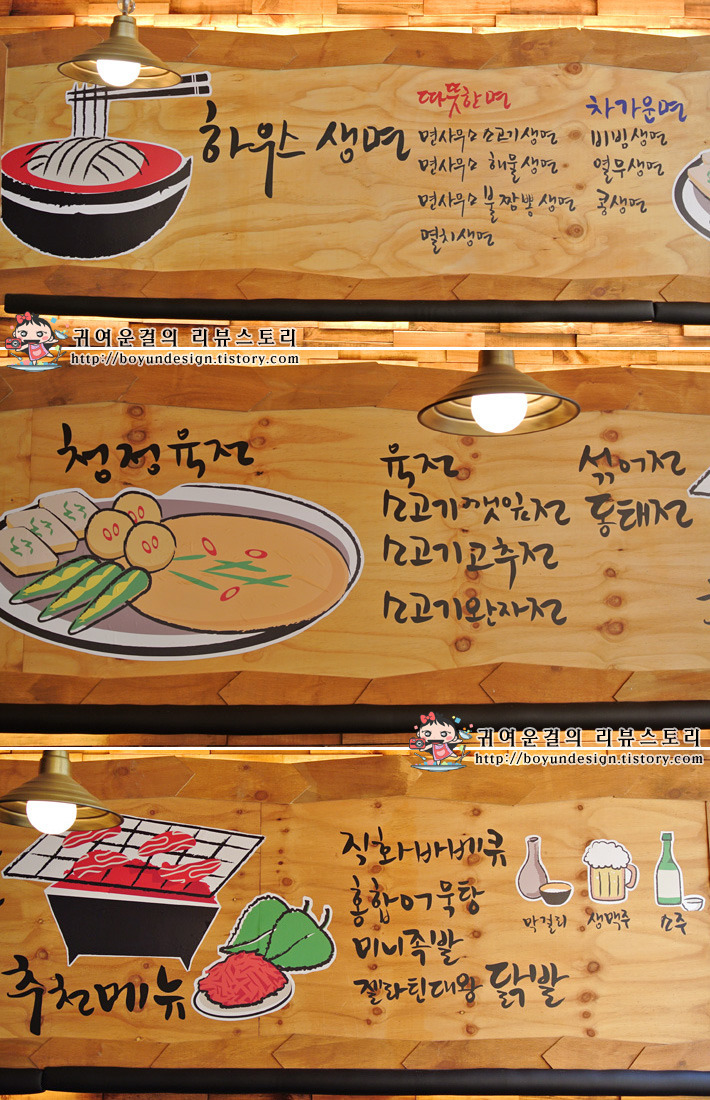 하우스 생면
따뜻한면
면사무소 소고기생면
면사무소 해물생면
면사무소 불짬뽕생면
멸치생면
차가운면
비빔생면
열무생면
콩생면
귀여운걸의 리뷰스토리
http://boyundesign.tistory.com
청정육전
육전
소고기깻잎전
소고기고추전
소고기완자전
섞어전
동태전
귀여운걸의 리뷰스토리
http://boyundesign.tistory.com
추천메뉴
직화바베큐
홍합어묵탕
미니족발
젤라틴대왕 닭발
막걸리
생맥주
소주